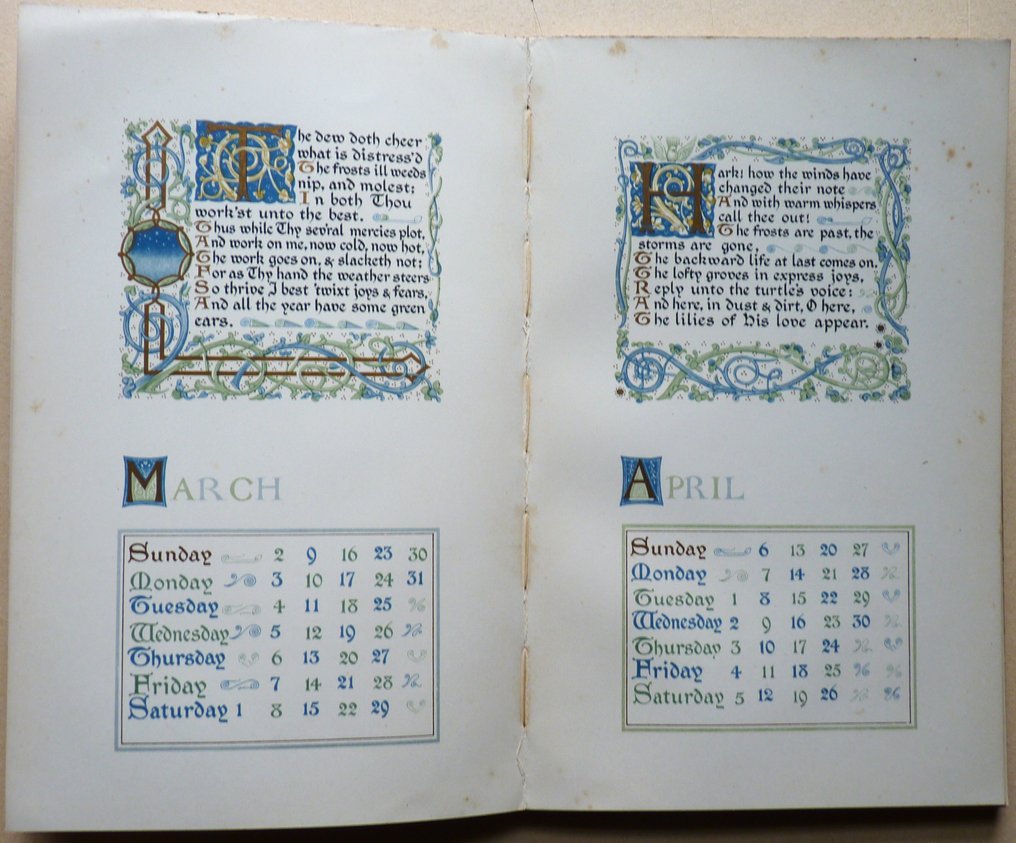 The dew doth cheer
what is distress'd
The frosts ill weeds
nip, and molest:
In both Thou
work'st unto the best.
Thus while Thy sev'ral mercies plot,
And work on me, now cold, now hot,
The work goes on, & slacketh not;
For as Thy hand the weather steers
So thrive I best 'twixt joys & fears,
And all the year have some green
ears.
MARCH
Sunday 2 9 16 23 30
Monday 3 10 17 24 31
Tuesday 4 11 18 25
Wednesday 5 12 19 26
Thursday 6 13 20 27
Friday 7 14 21 28
Saturday 1 8 15 22 29
Hark: how the winds have
changed their note
And with warm whispers
call thee out!
The frosts are past, the
storms are gone,
The backward life at last comes on,
The lofty groves in express joys,
Reply unto the turtle's voice:
And here, in dust & dirt, O here,
The lilies of His love appear.
APRIL
Sunday 6 13 20 27
Monday 7 14 21 28
Tuesday 1 8 15 22 29
Wednesday 2 9 16 23 30
Thursday 3 10 17 24
Friday 4 11 18 25
Saturday 5 12 19 26